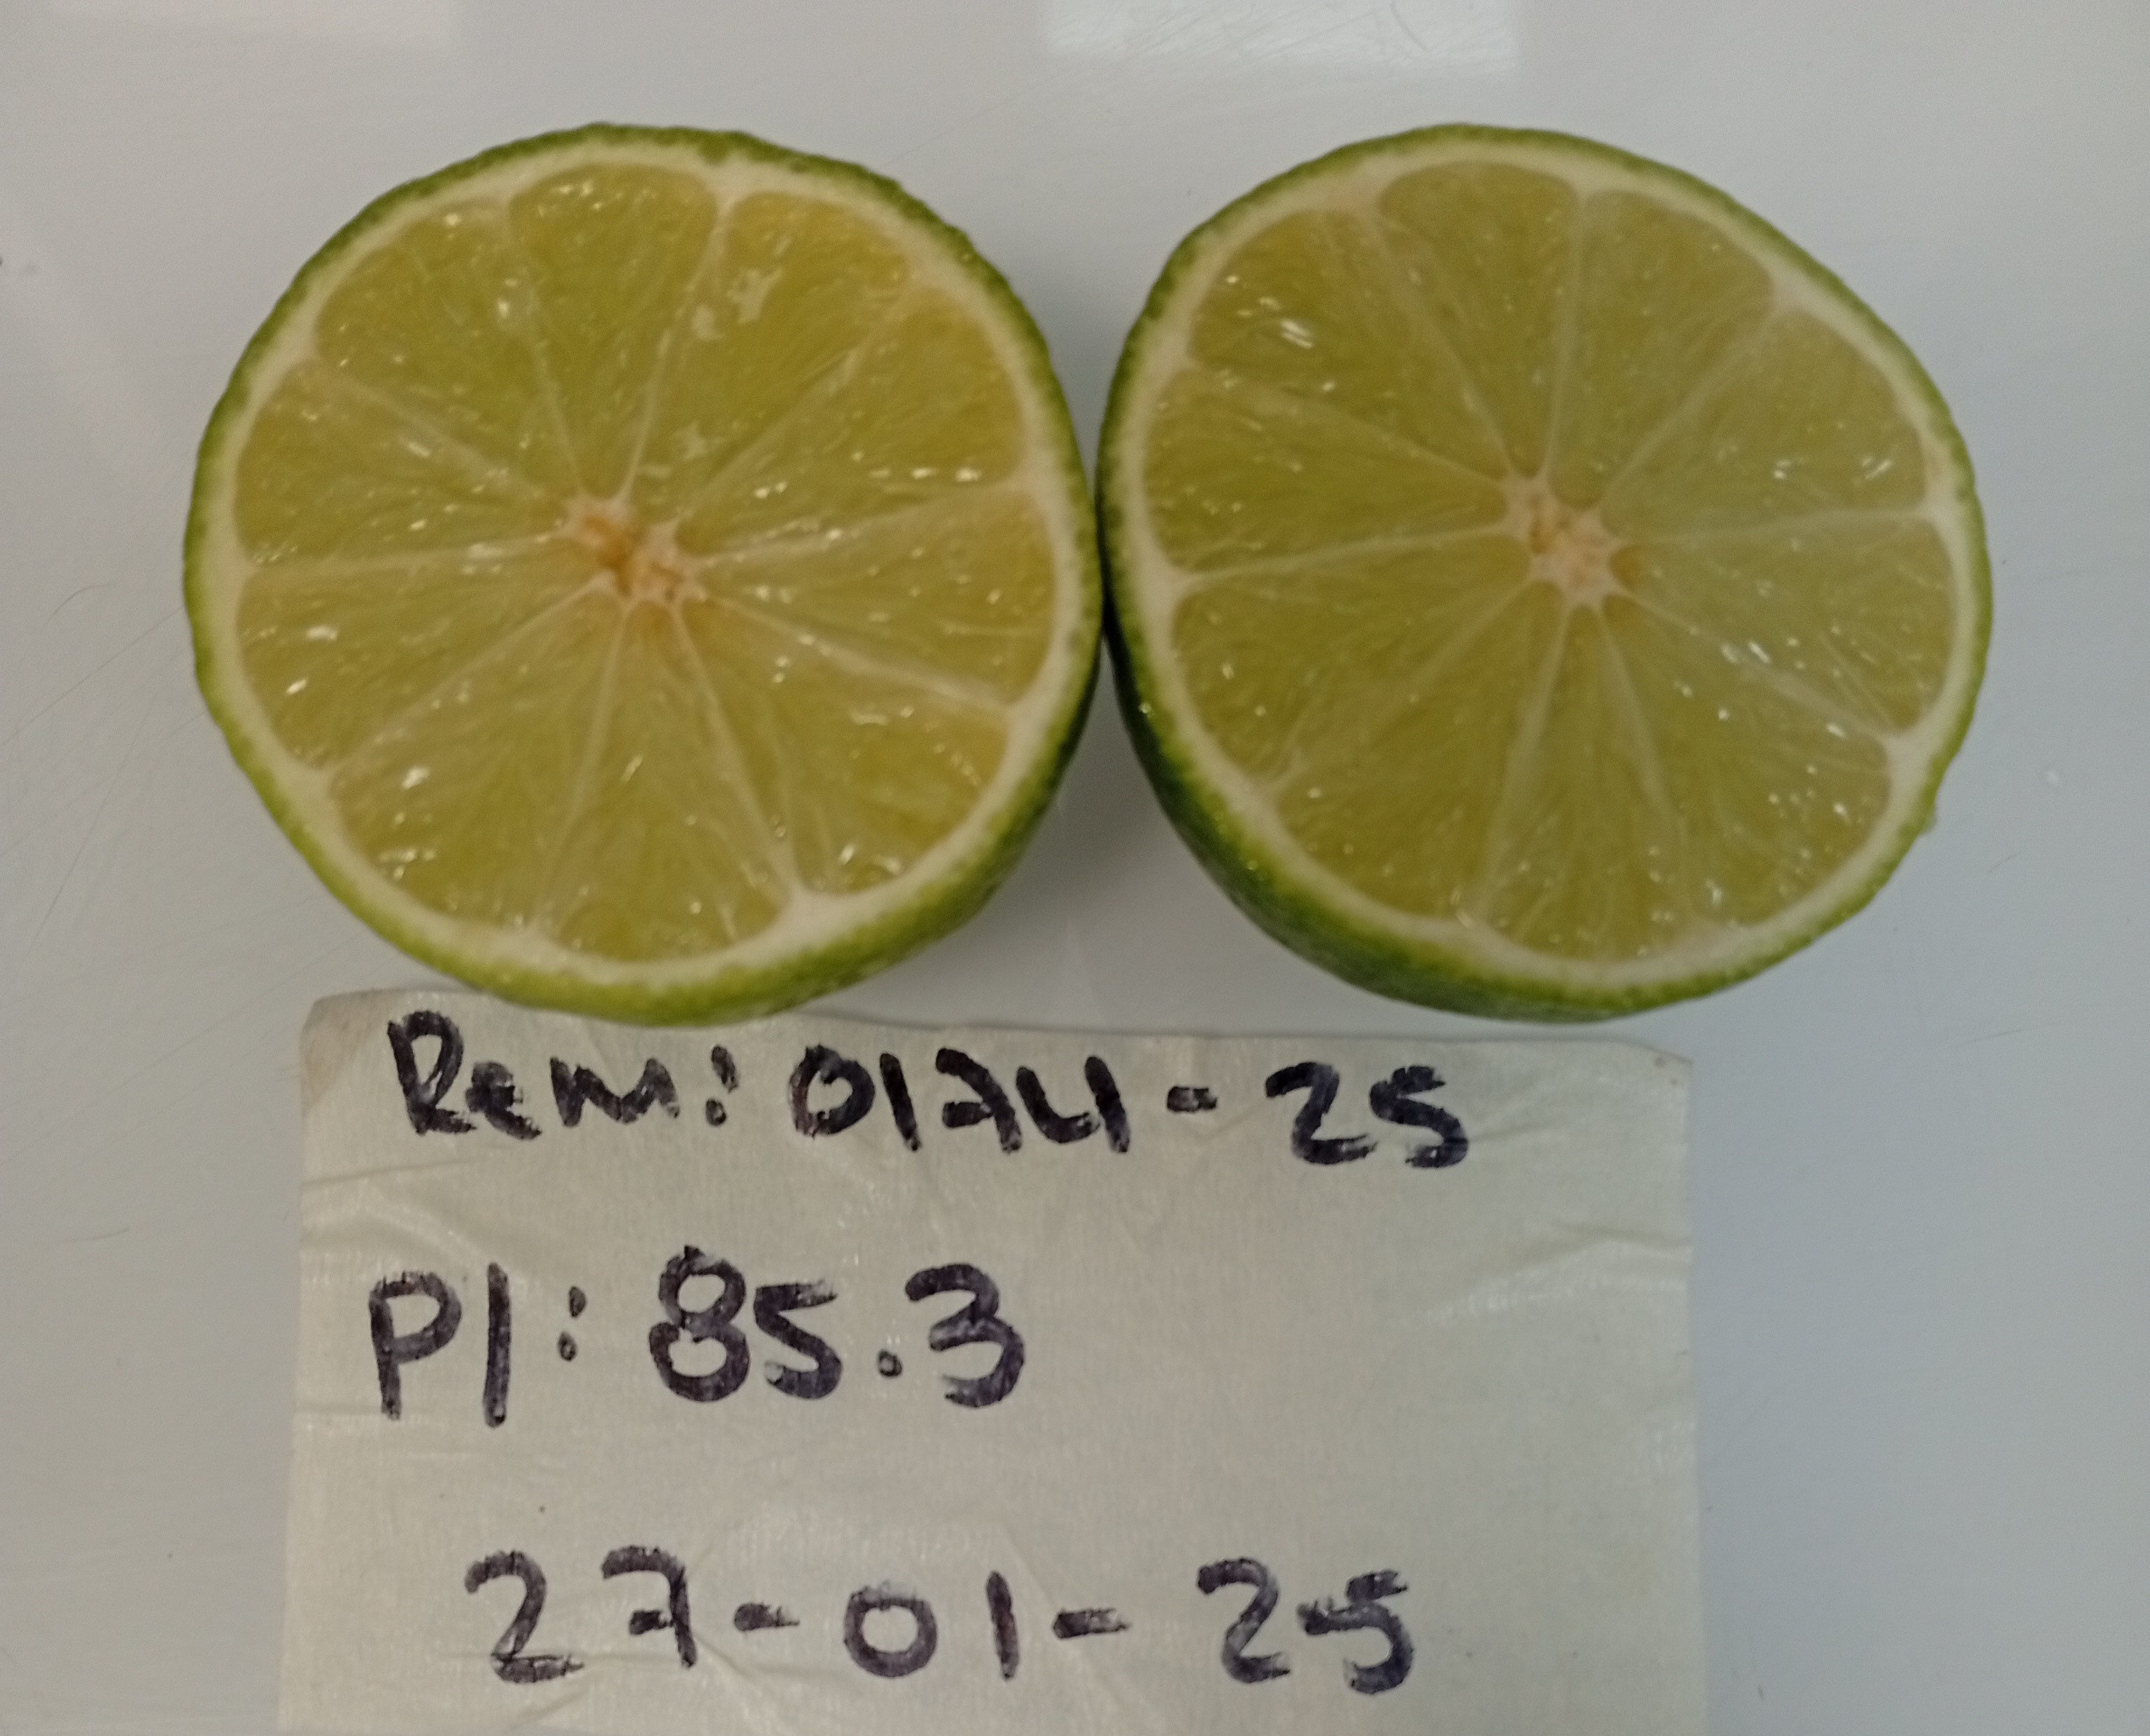 Rem: 0174-25
PI: 85.3
27-01-25